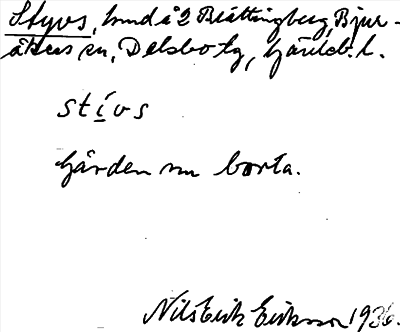 Styvs, hmd å 2 Brättingberg, Bjur-
åkers sn, Delsbo tg, Gävleb. l.
stivs
Gården nu borta.
Nils Erik Eriksson 1936.